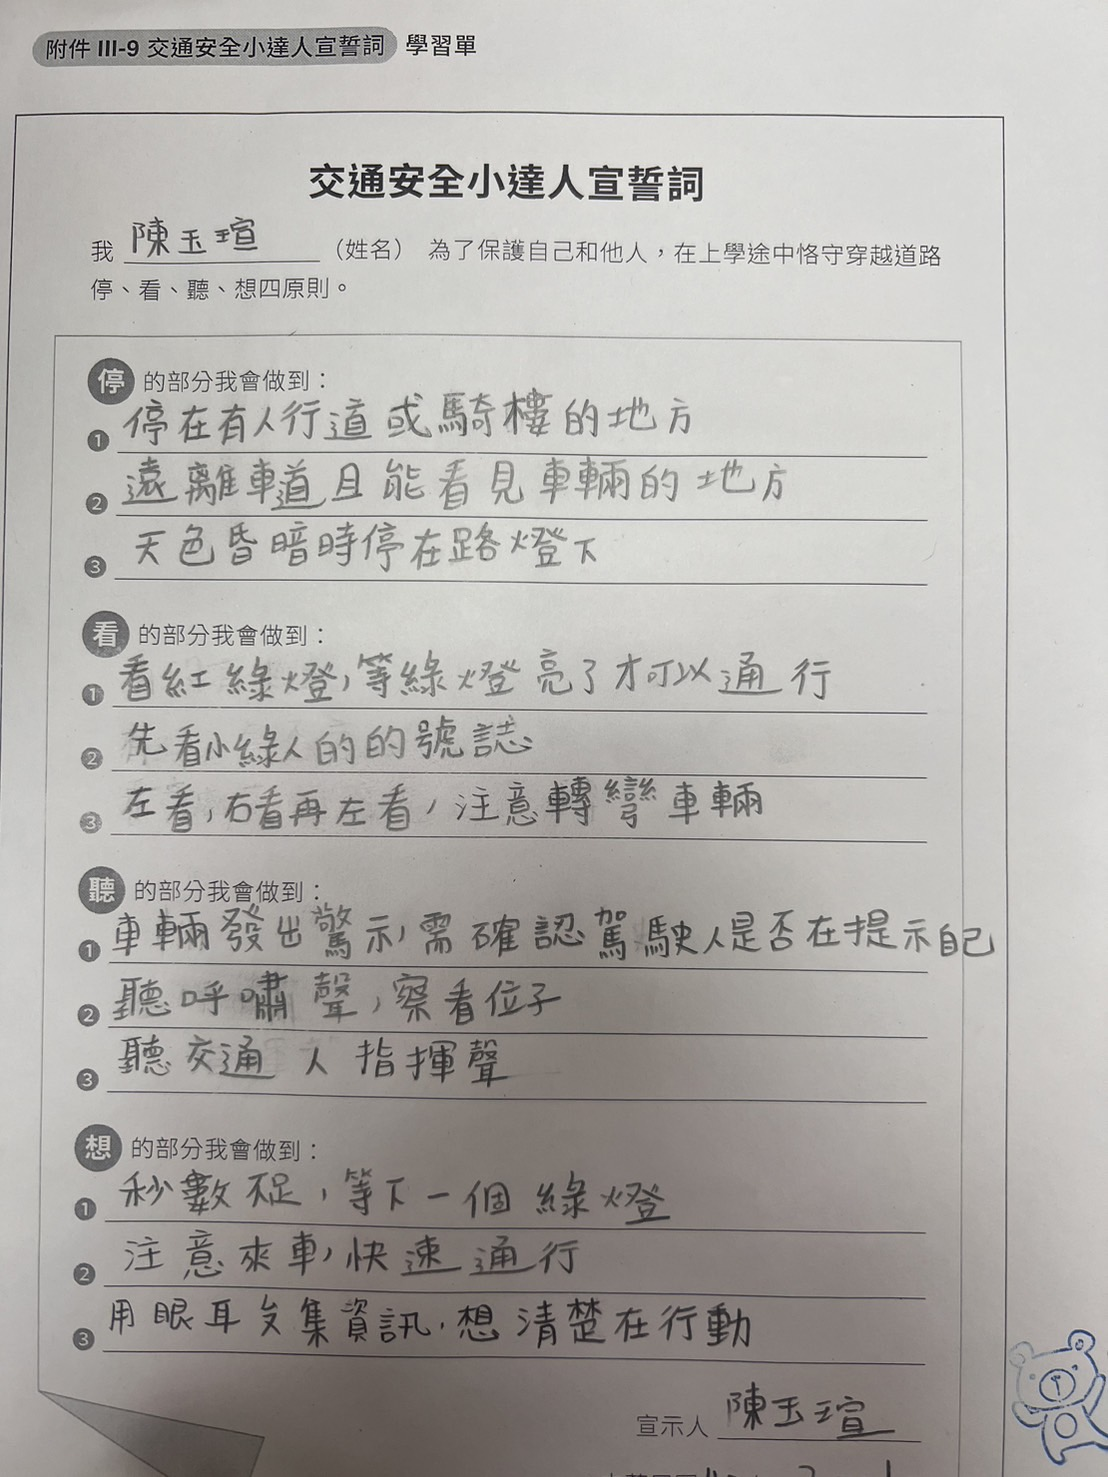 附件 III-9 交通安全小達人宣誓詞 學習單
交通安全小達人宣誓詞
我 陳玉瑄 （姓名） 為了保護自己和他人，在上學途中恪守穿越道路
停、看、聽、想四原則。
停 的部分我會做到：
1 停在有人行道或騎樓的地方
2 遠離車道且能看見車輛的地方
3 天色昏暗時停在路燈下
看 的部分我會做到：
1 看紅綠燈，等綠燈亮了才可以通行
2 先看小綠人的的號誌
3 左看，右看再左看，注意轉彎車輛
聽 的部分我會做到：
1 車輛發出驚示，需確認駕駛人是否在提示自己
2 聽呼嘯聲，察看位子
3 聽交通人指揮聲
想 的部分我會做到：
1 秒數不足，等下一個綠燈
2 注意來車，快速通行
3 用眼耳集資訊，想清楚在行動
宣示人 陳玉瑄